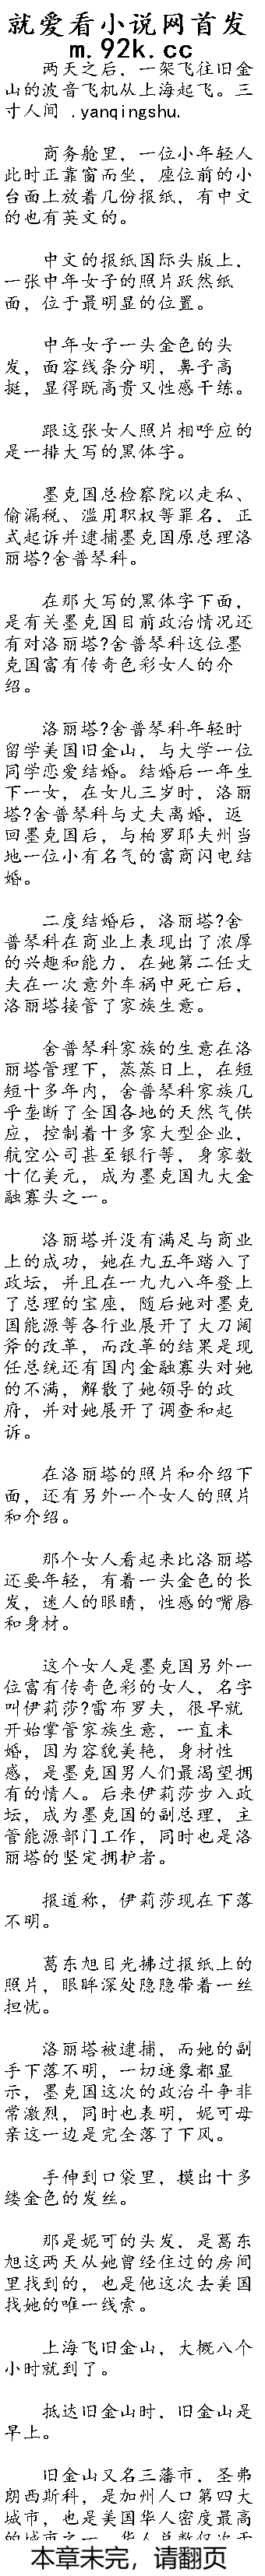 就爱看小说网首发
m.92k.cc
两天之后，一架飞往旧金
山的波音飞机从上海起飞。三
寸人间 .yanqingshu.
商务舱里，一位小年轻人
此时正靠窗而坐，座位前的小
台面上放着几份报纸，有中文
的也有英文的。
中文的报纸国际头版上，
一张中年女子的照片跃然纸
面，位于最明显的位置。
中年女子一头金色的头
发，面容线条分明，鼻子高
挺，显得既高贵又性感干练。
跟这张女人照片相呼应的
是一排大写的黑体字。
墨克国总检察院以走私、
偷漏税、滥用职权等罪名，正
式起诉并逮捕墨克国原总理洛
丽塔?舍普琴科。
在那大写的黑体字下面，
是有关墨克国目前政治情况还
有对洛丽塔?舍普琴科这位墨
克国富有传奇色彩女人的介
绍。
洛丽塔?舍普琴科年轻时
留学美国旧金山，与大学一位
同学恋爱结婚。结婚后一年生
下一女，在女儿三岁时，洛丽
塔?舍普琴科与丈夫离婚，返
回墨克国后，与柏罗耶夫州当
地一位小有名气的富商闪电结
婚。
二度结婚后，洛丽塔?舍
普琴科在商业上表现出了浓厚
的兴趣和能力，在她第二任丈
夫在一次意外车祸中死亡后，
洛丽塔接管了家族生意。
舍普琴科家族的生意在洛
丽塔管理下，蒸蒸日上，在短
短十多年内，舍普琴科家族几
乎垄断了全国各地的天然气供
应，控制着十多家大型企业，
航空公司甚至银行等，身家数
十亿美元，成为墨克国九大金
融寡头之一。
洛丽塔并没有满足与商业
上的成功，她在九五年踏入了
政坛，并且在一九九八年登上
了总理的宝座，随后她对墨克
国能源等各行业展开了大刀阔
斧的改革，而改革的结果是现
任总统还有国内金融寡头对她
的不满，解散了她领导的政
府，并对她展开了调查和起
诉。
在洛丽塔的照片和介绍下
面，还有另外一个女人的照片
和介绍。
那个女人看起来比洛丽塔
还要年轻，有着一头金色的长
发，迷人的眼睛，性感的嘴唇
和身材。
这个女人是墨克国另外一
位富有传奇色彩的女人，名字
叫伊莉莎?雷布罗夫，很早就
开始掌管家族生意，一直未
婚，因为容貌美艳，身材性
感，是墨克国男人们最渴望拥
有的情人。后来伊莉莎步入政
坛，成为墨克国的副总理，主
管能源部门工作，同时也是洛
丽塔的坚定拥护者。
报道称，伊莉莎现在下落
不明。
葛东旭目光拂过报纸上的
照片，眼眸深处隐隐带着一丝
担忧。
洛丽塔被逮捕，而她的副
手下落不明，一切迹象都显
示，墨克国这次的政治斗争非
常激烈，同时也表明，妮可母
亲这一边是完全落了下风。
手伸到口袋里，摸出十多
缕金色的发丝。
那是妮可的头发，是葛东
旭这两天从她曾经住过的房间
里找到的，也是他这次去美国
找她的唯一线索。
上海飞旧金山，大概八个
小时就到了。
抵达旧金山时，旧金山是
早上。
旧金山又名三藩市，圣弗
朗西斯科，是加州人口第四大
城市，也是美国华人密度最高
的城市之一，华人总数仅次于
本章未完，请翻页